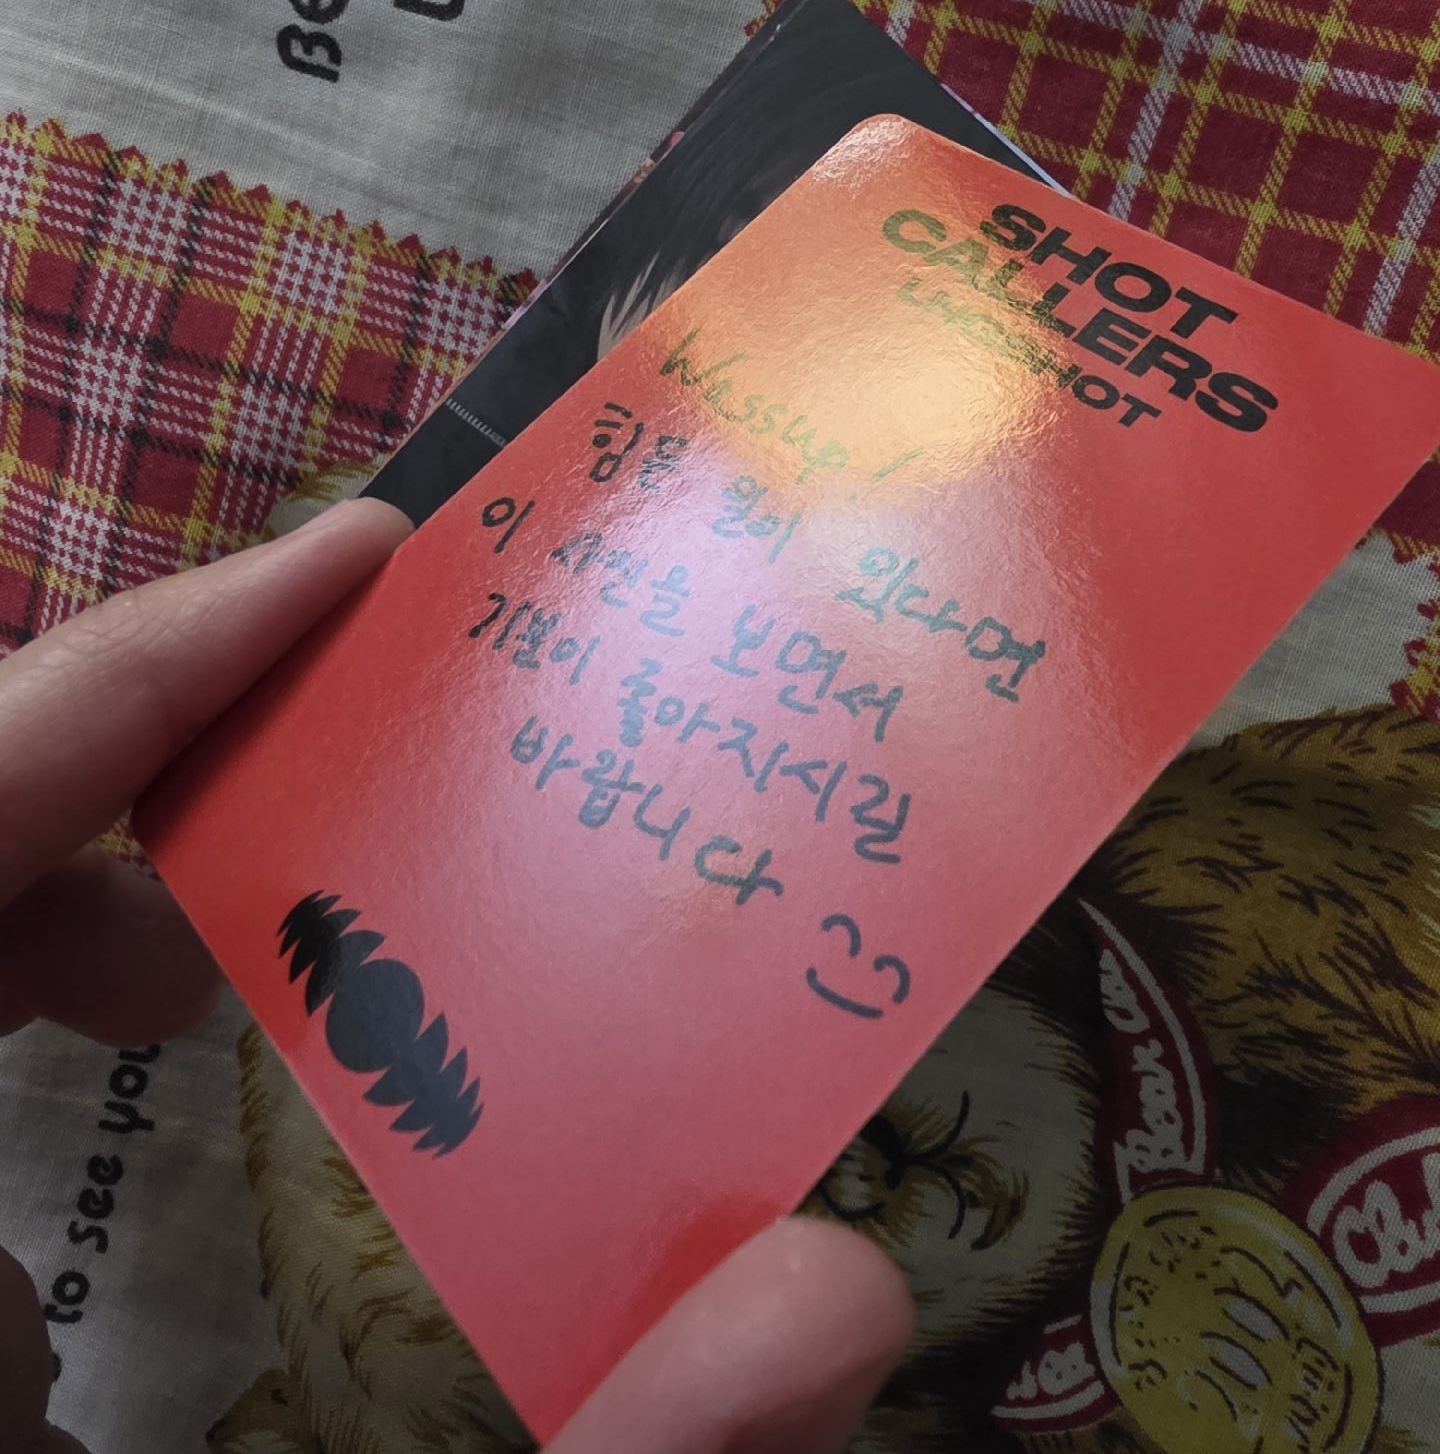 SHOT
CALLERS
LNGSHOT
Wassup!
힘든 일이 있다면
이 사진을 보면서
기분이 좋아지시길
바랍니다
to see you
Be
Bear